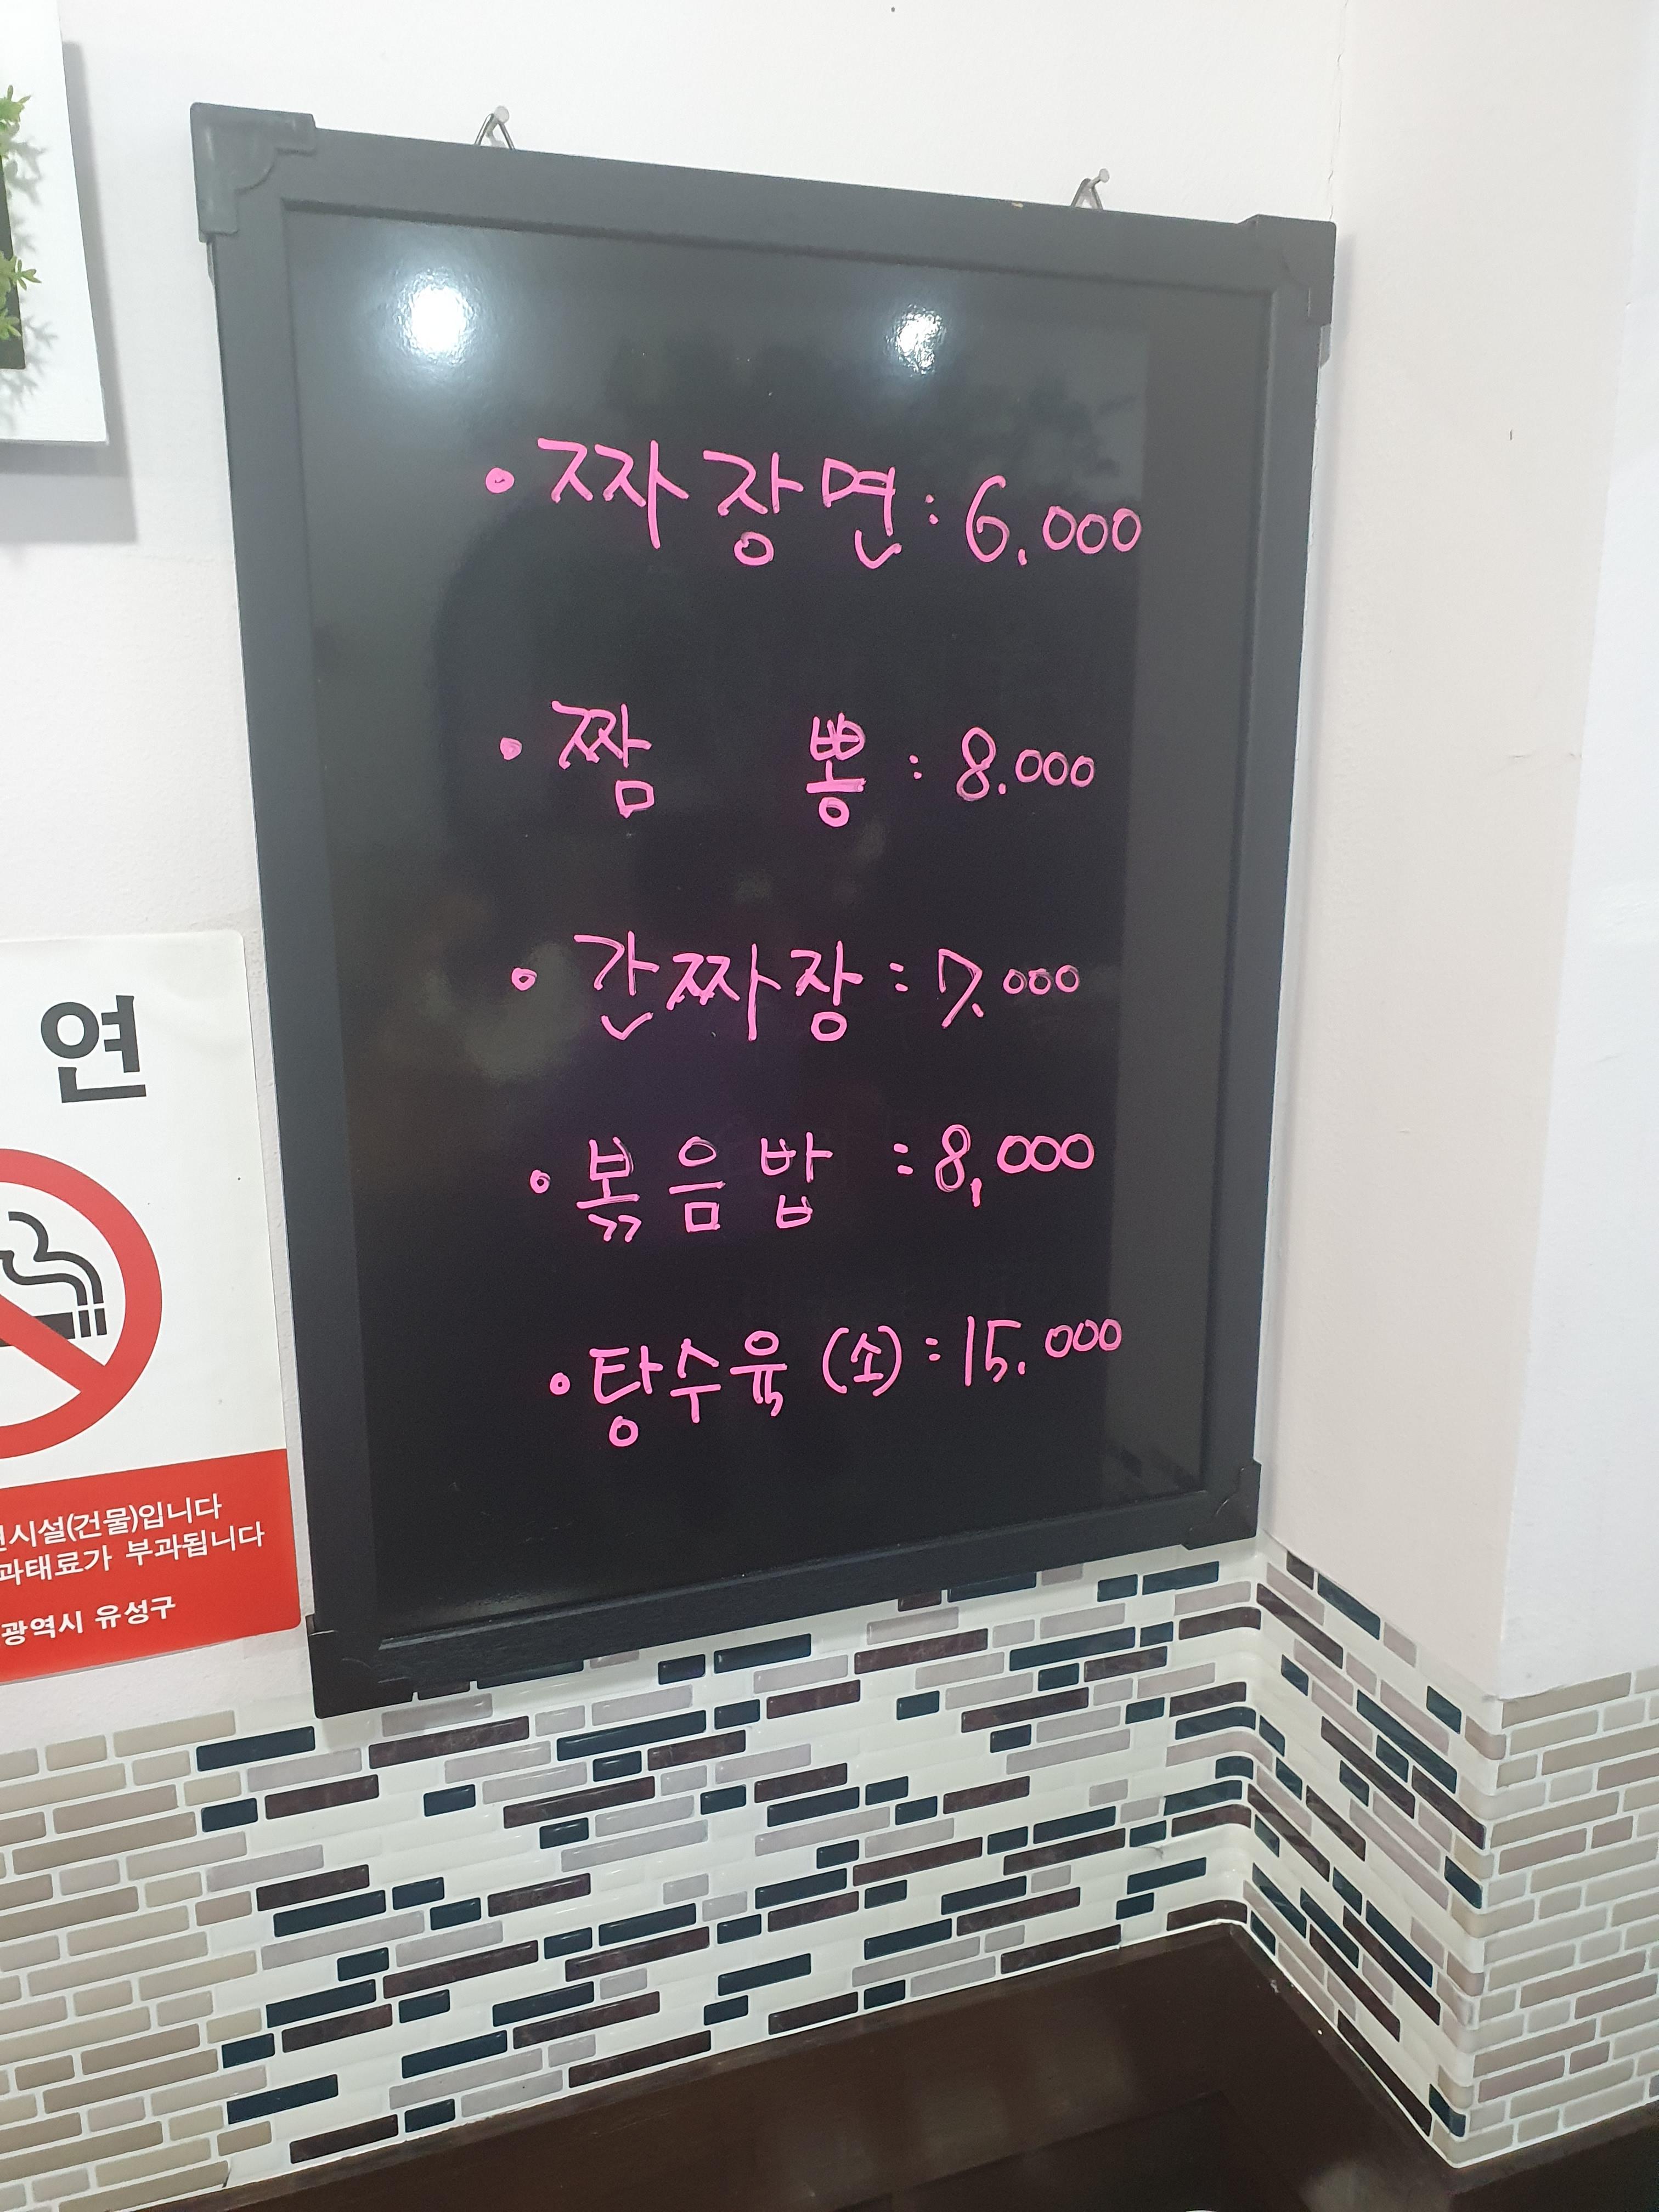 • 짜장면 : 6.000
• 짬 뽕 : 8.000
• 간짜장 : 7.000
• 볶음밥 : 8,000
• 탕수육 (소) : 15.000
연
시설(건물)입니다
과태료가 부과됩니다
광역시 유성구